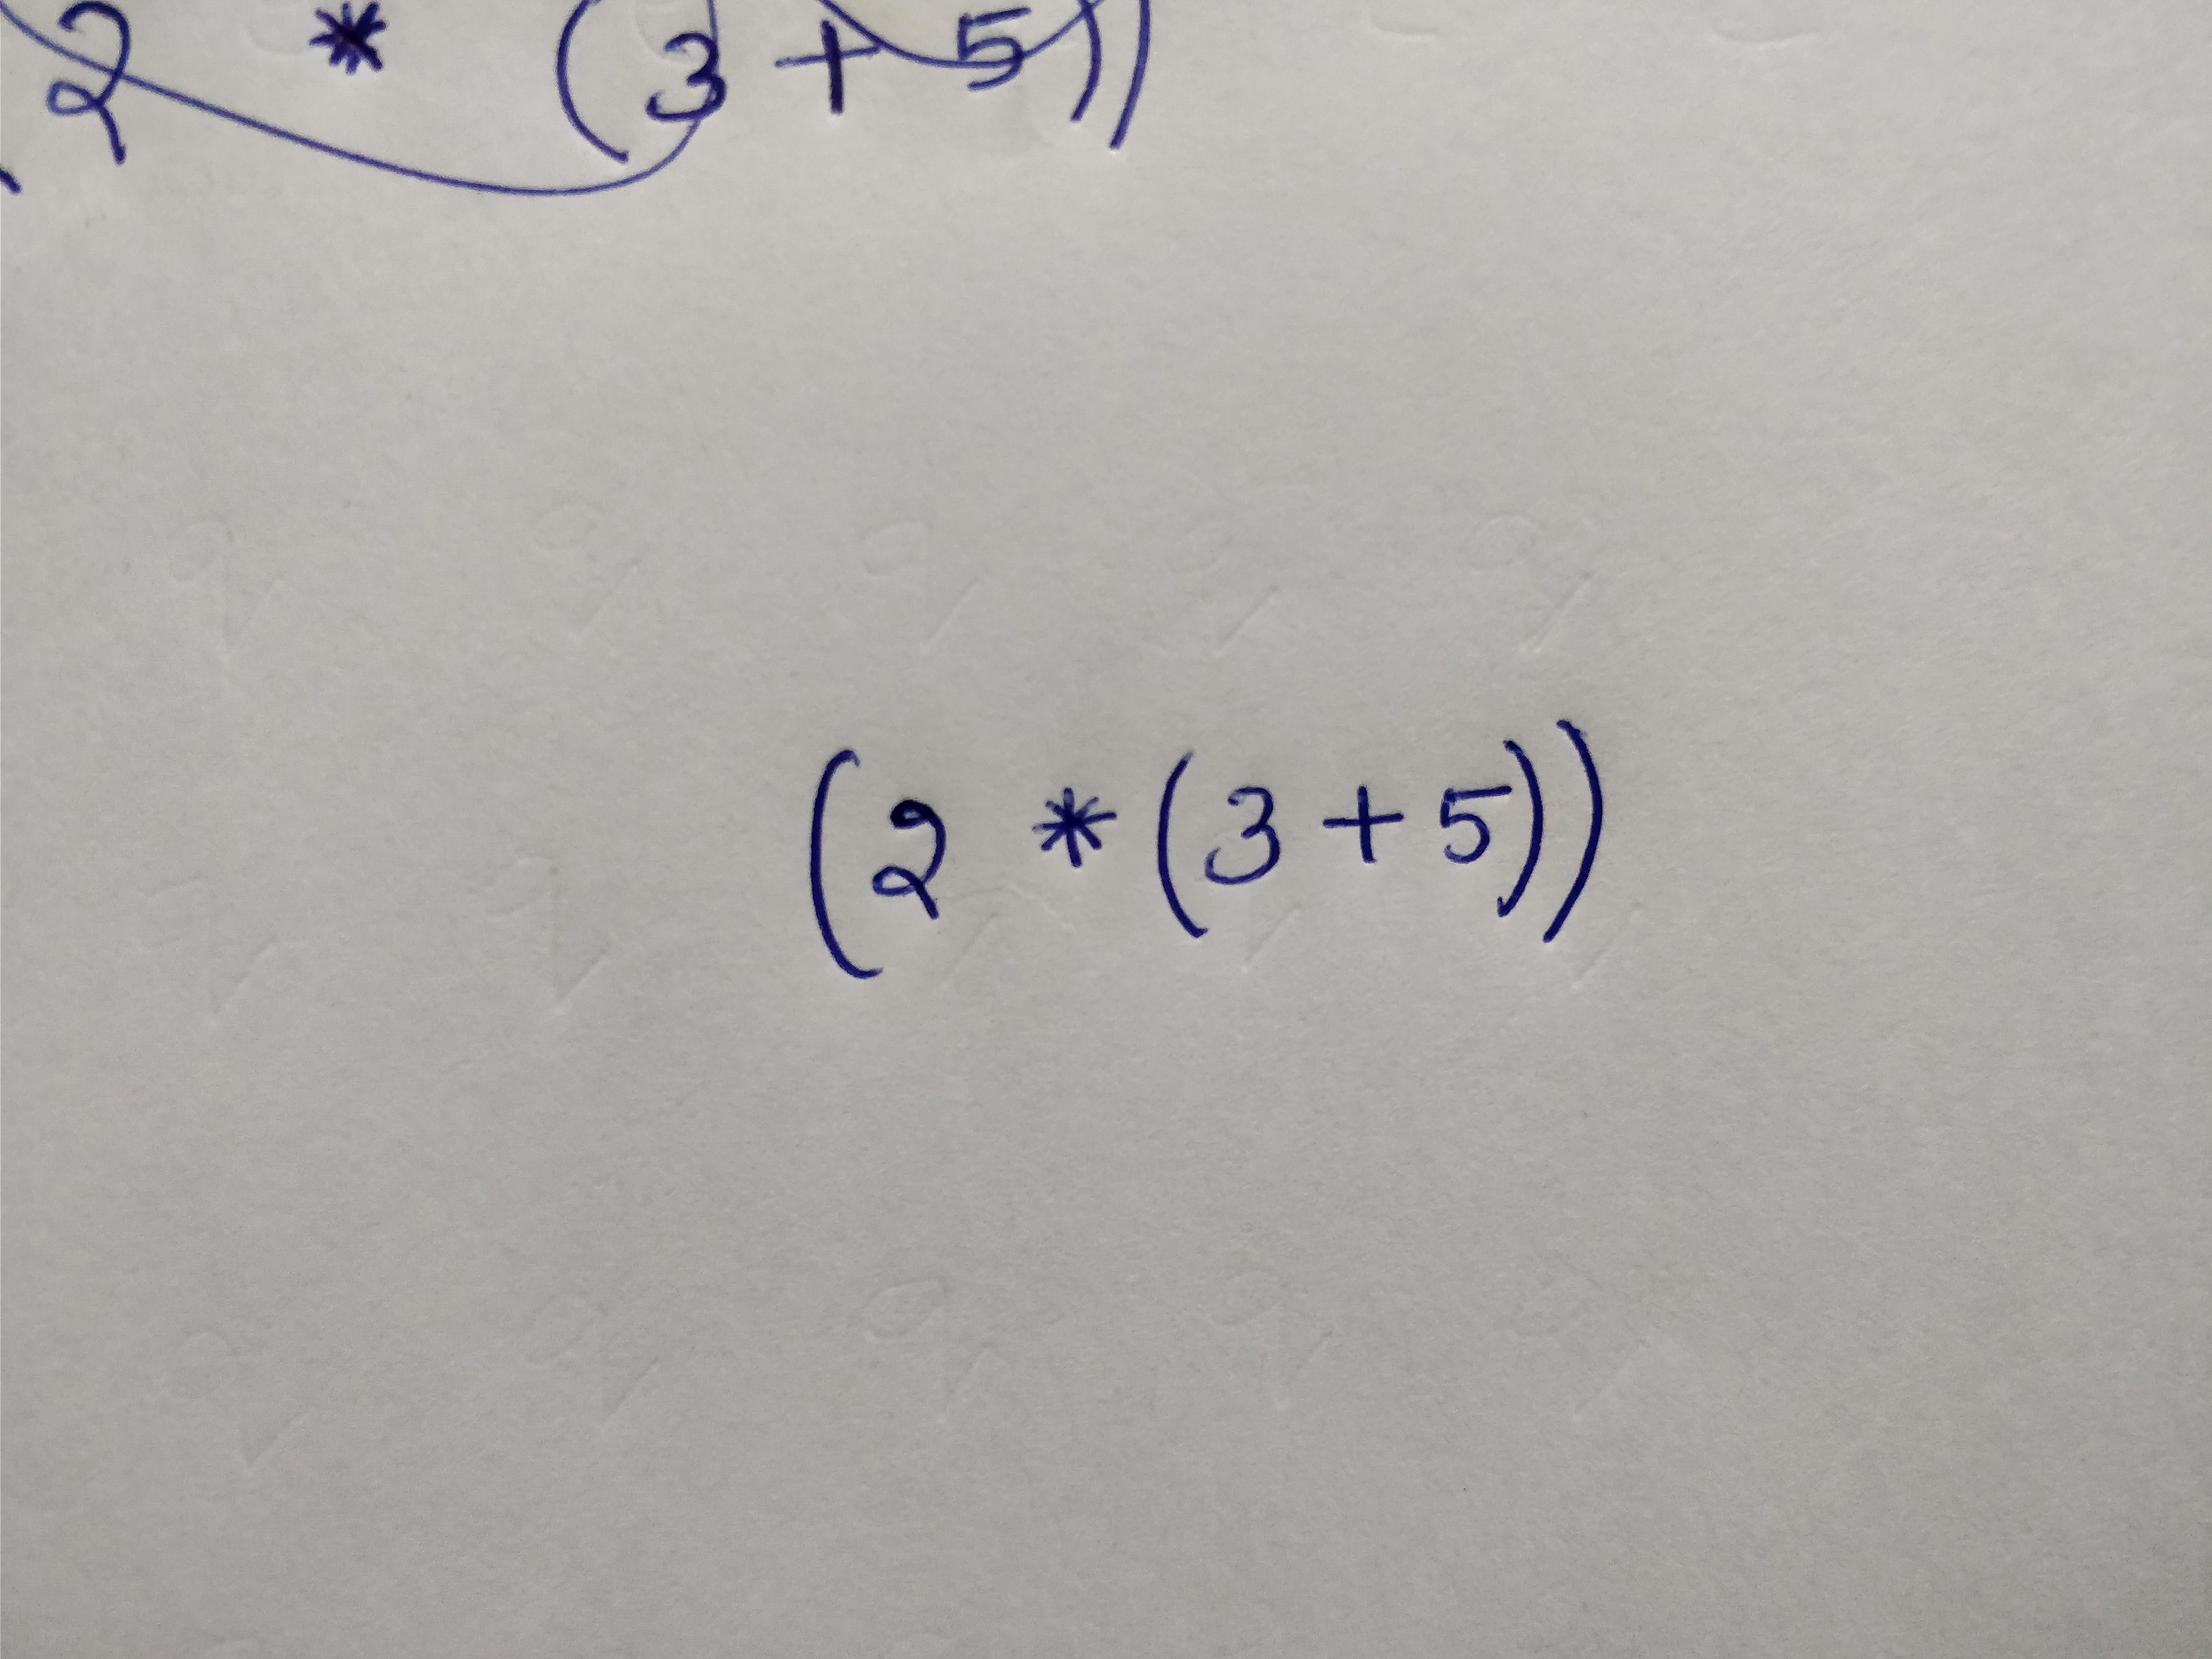 2 * (3 + 5))
(2 * (3 + 5))